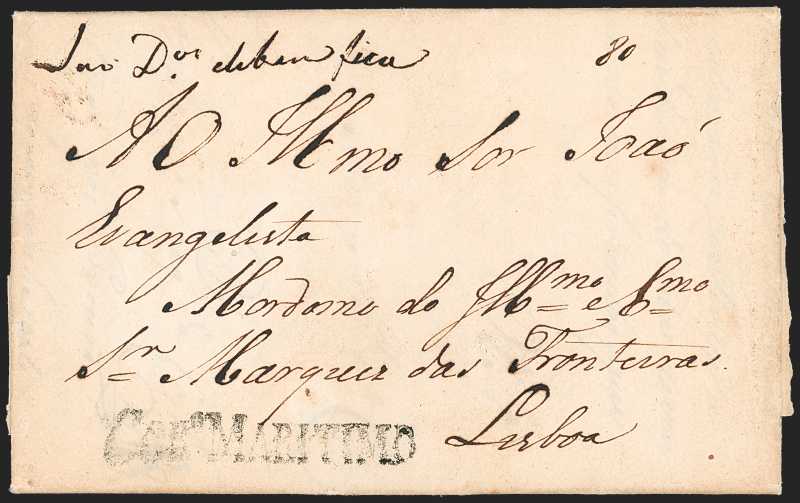 S. Dos de bemfica 80
AO Illmo Sor Joaó
Evangelista
Mordomo do Illmo e Exmo
Sr Marquez das Fronteiras.
Lisboa
Corro MARITIMO